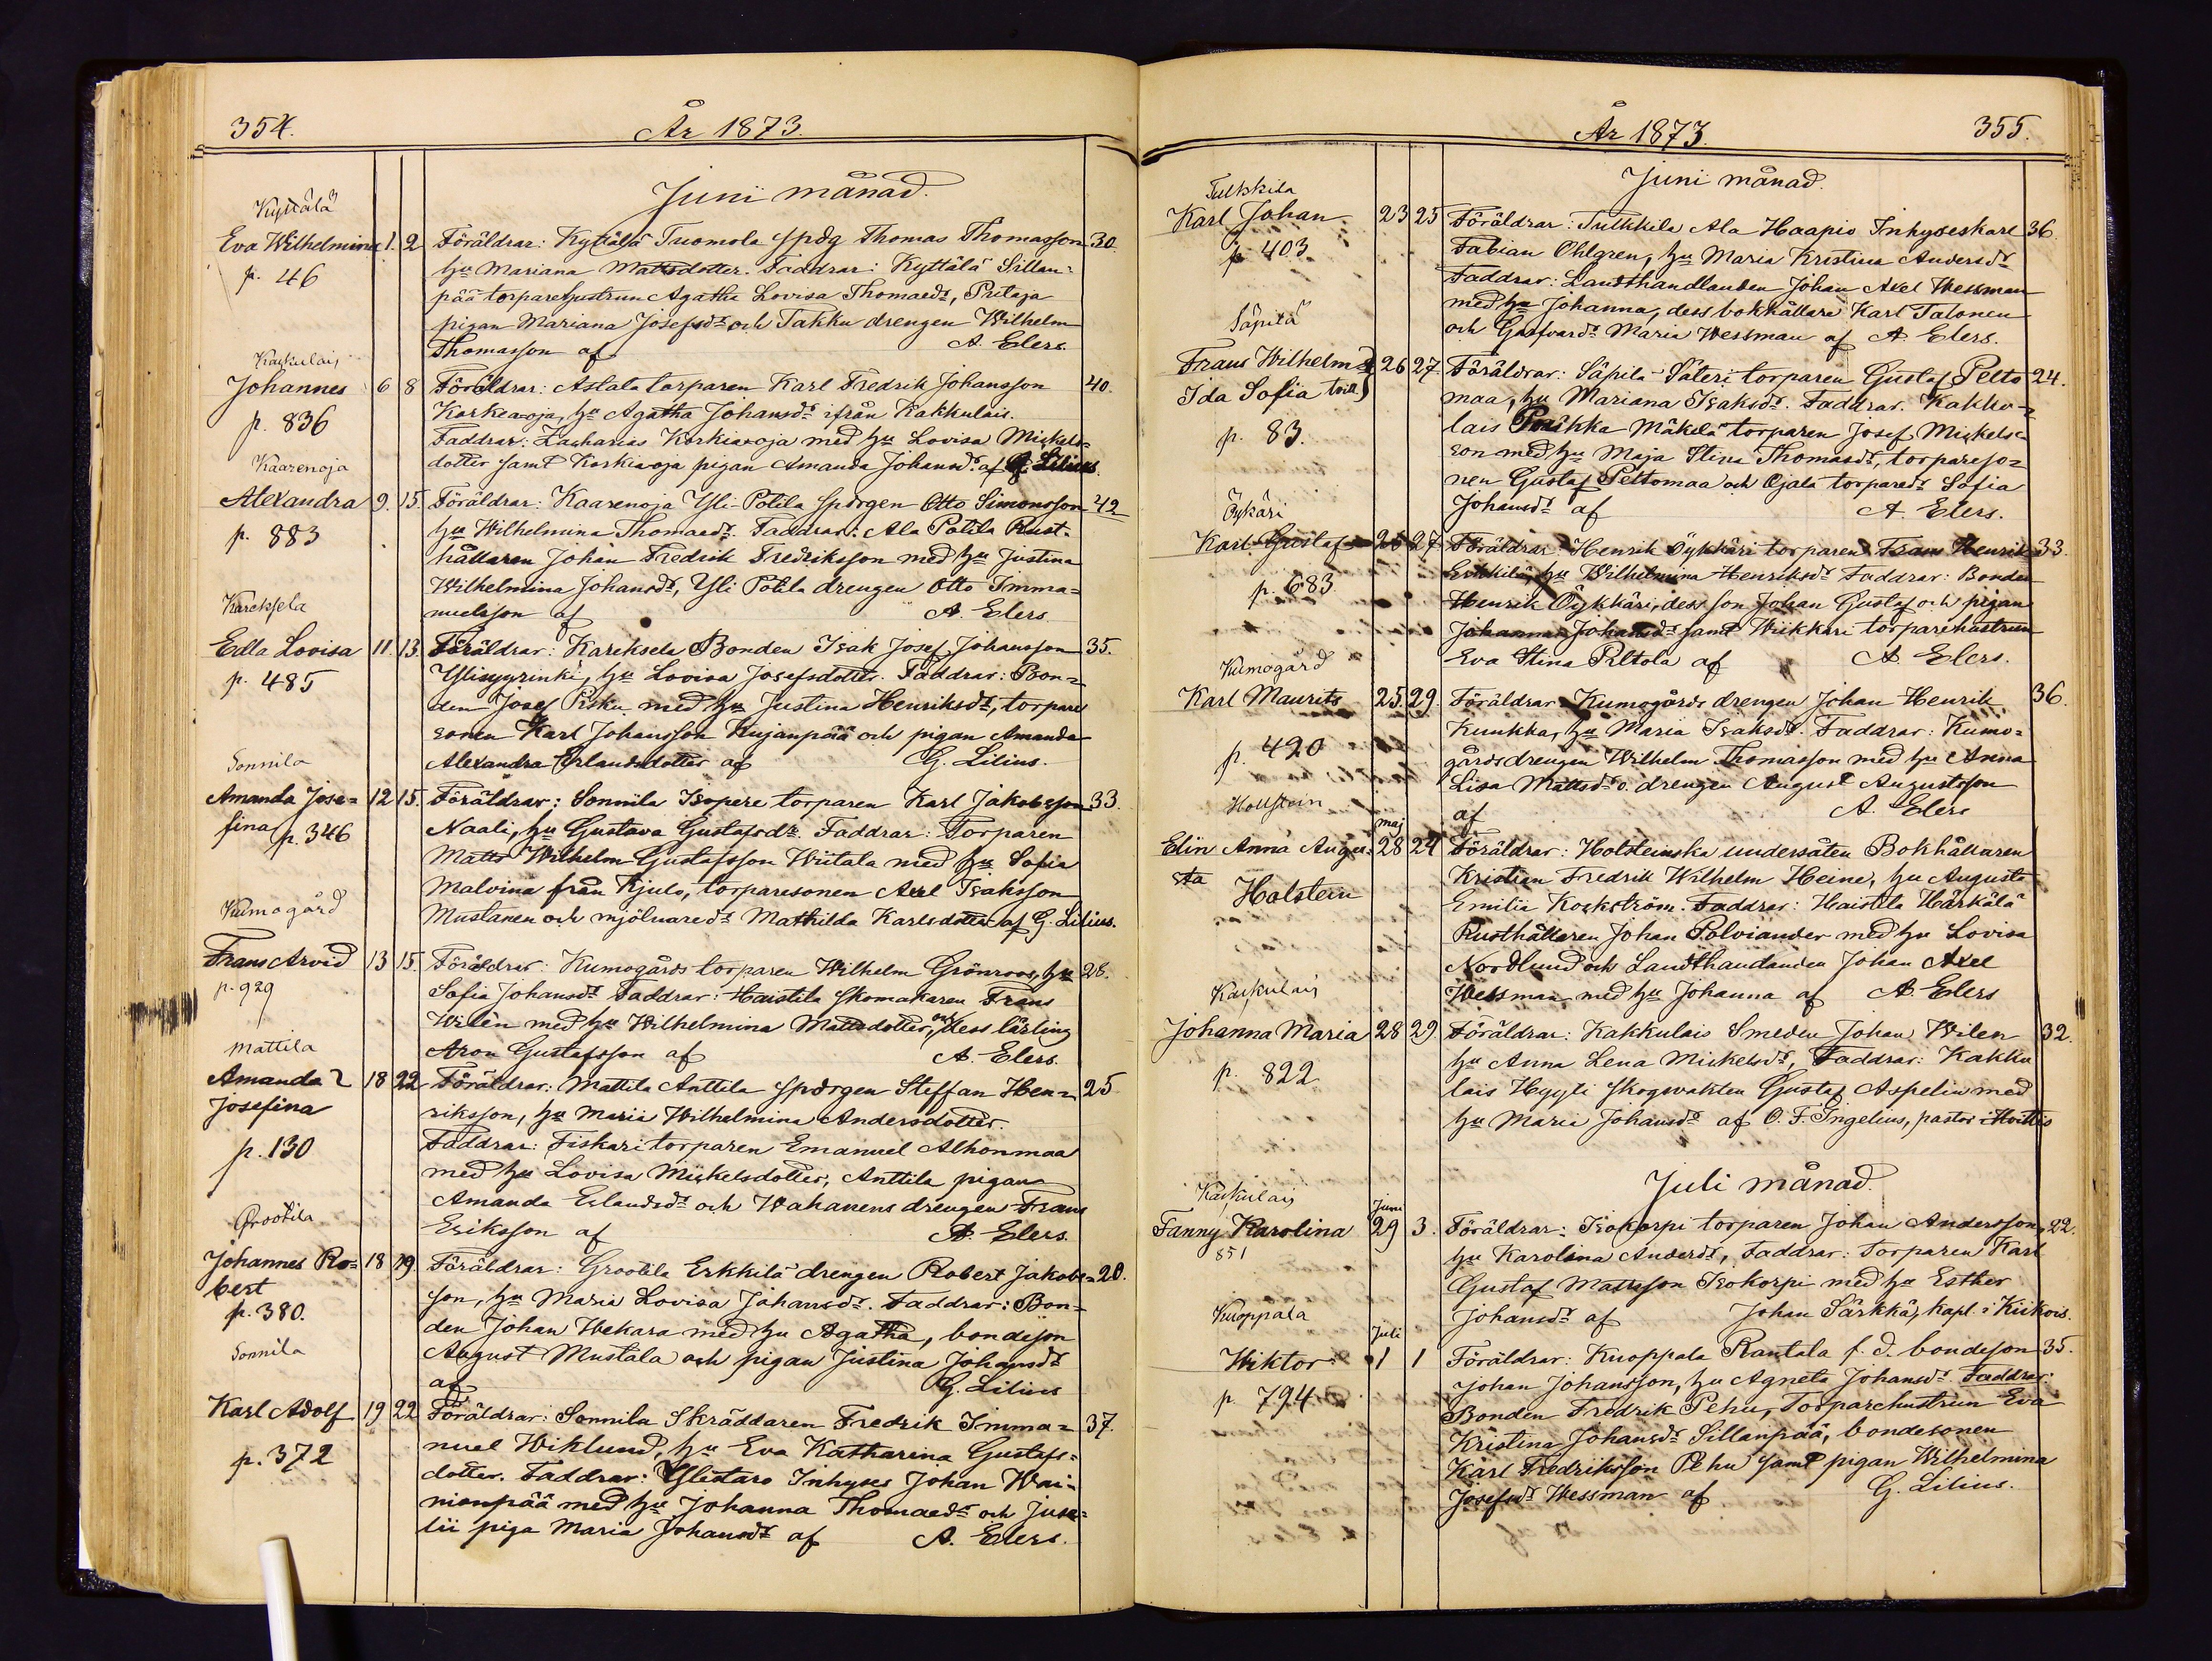 354.
År 1873.
Junii månad.
Kyttälä
Eva Wilhelmina 1. 2 Föräldrar: Kyttälä Tuomola spdg Thomas Thomasson 30.
p. 46
hu Mariana Mattsdotter. Faddrar: Kyttälä Sillan=
pää torparehustrun Agatha Lovisa Thomaedr, Pritaja
pigan Mariana Josefsdr och Takku drengen Wilhelm
Thomasson af A. Elers.
Kaskulais
Johannes 6 8 Föräldrar: Astala torparen Karl Fredrik Johansson 40.
p. 836
Korkeaoja, hu Agatha Johansdr ifrån Kakkulais.
Faddrar: Zacharias Korkiaoja med hu Lovisa Mickels=
dotter samt Korkiaoja pigan Amanda Johansdr af G. Lilius.
Kaarenoja
Alexandra 9. 15. Föräldrar: Kaarenoja Yli-Potila spdrgen Otto Simonsson 42
p. 883
hu Wilhelmina Thomasdr. Faddrar: Ala Potila Rust-
hållaren Johan Fredrik Fredriksson med hu Justina
Wilhelmina Johansdr, Yli Potila drengen Otto Imma=
nuelsson af A. Elers.
Karcksela
Edla Lovisa 11. 13. Föräldrar: Karcksela Bonden Isak Josef Johansson 35.
p. 485
Ylisyyrinki, hu Lovisa Josefsdotter. Faddrar: Bon=
den Josef Pisku med hu Justina Henriksdr, torpare
sonen Karl Johansson Kujanpää och pigan Amanda
Alexandra Erlandsdotter af G. Lilius.
Sonnila
Amanda Jose= 12 15. Föräldrar: Sonnila Isopere torparen Karl Jakobsson 33.
fina p. 346
Naali, hu Gustava Gustafsdr. Faddrar: Torparen
Matts Wilhelm Gustafsson Wiitala med hu Sofia
Malvina från Kjulo, torparesonen Axel Isaksson
Mustanen och mjölnaredr Mathilda Karlsdotter af G. Lilius.
Kumogård
Frans Arvid 13 15. Föräldrar: Kumogårds torparen Wilhelm Grönroos, hu 28.
p. 929
Sofia Johansdr Faddrar: Haistila Skomakaren Frans
Wilén med hu Wilhelmina Mattsdotter, och dess lärling
Aron Gustafsson af A. Elers.
Mattila
Amanda 18 22 Föräldrar: Mattila Anttila spdrgen Steffan Hen= 25.
Josefina
p. 130
riksson, hu Maria Wilhelmina Andersdotter.
Faddrar: Fiskari torparen Emanuel Alhonmaa
med hu Lovisa Mickelsdotter, Anttila pigan
Amanda Erlandsdr och Wahanens drengen Frans
Eriksson af A. Elers.
Grootila
Johannes Ro= 18 19 Föräldrar: Grootila Erkkilä drengen Robert Jakobs= 20.
bert
p. 380.
son, hu Maria Lovisa Johansdr. Faddrar: Bon=
den Johan Wekara med hu Agatha, bondeson
August Mustala och pigan Justina Johansdr
af G. Lilius
Sonnila
Karl Adolf 19 22 Föräldrar: Sonnila Skräddaren Fredrik Imma= 37.
p. 372
nuel Wiklund, hu Eva Katharina Gustafs=
dotter. Faddrar: Ylistaro Inhyses Johan Wai=
nionpää med hu Johanna Thomaedr och Juse=
lii piga Maria Johansdr af A. Elers.
År 1873.
355.
Juni månad.
Tulkkila
Karl Johan 23 25 Föräldrar: Tulkkila Ala Haapio Inhyseskarl 36.
p. 403.
Fabian Ohlgren, hu Maria Kristina Andersdr
Faddrar: Landthandlanden Johan Axel Wessman
med hu Johanna, dess bokhållare Karl Talonen
och Gastvardr Maria Wessman af A. Elers.
Säpilä
Frans Wilhelm & 26 27. Föräldrar: Säpila-Säteri torparen Gustaf Pelto 24.
Ida Sofia tvill.
p. 83.
maa, hu Mariana Isaksdr. Faddrar. Kakku=
lais Prähka Mäkelä torparen Josef Mickels=
son med hu Maja Stina Thomasdr, torpareso=
nen Gustaf Peltomaa och Ojala torparedr Sofia
Johansdr af A. Elers.
Öykäri
Karl Gustaf 26 27 Föräldrar: Henrik Öykkäri torparen Frans Henrik 33.
p. 683
Erkkilä, hu Wilhelmina Henriksdr Faddrar: Bonden
Henrik Öykkäri, dess son Johan Gustaf och pigan
Johanna Johansdr samt Wiikkari torparehustrun
Eva Stina Peltola af A. Elers.
Kumogård
Karl Maurits 25. 29. Föräldrar Kumogårds drengen Johan Henrik 36.
p. 420
Kunkka, hu Maria Isaksdr. Faddrar: Kumo=
gårds drengen Wilhelm Thomasson med hu Anna
Lisa Mattsdr o. drengen August Augustsson
af A. Elers
Hollstein
maj
Elin Anna Augu= 28 24 Föräldrar: Holsteinska undersåten Bokhållaren
sta
Holstein
Kristian Fredrik Wilhelm Heine, hu Augusta
Emilia Kockström. Faddrar: Haistila Härkälä
Rusthållaren Johan Polviander med hu Lovisa
Nordlund och Landthandanden Johan Axel
Wessman med hu Johanna af A. Elers
Kaskulais
Johanna Maria 28 29. Föräldrar: Kakkulais Smeden Johan Wilen 32.
p. 822
hu Anna Lena Mickelsdr, Faddrar: Kakku
lais Hyyti skogvakten Gustaf Aspelin med
hu Maria Johansdr af O. F. Ingelius, pastor i Hvittis
Juli månad.
Kaskulais
Juni
Fanny Karolina 29 3. Föräldrar: Isokorpi torparen Johan Andersson, 22.
851
hu Karolina Andersdr, Faddrar: Torparen Karl
Gustaf Mattsson Isokorpi med hu Esther
Johansdr af Johan Särkkä, kapl. i Kiikois.
Kuoppala
Juli
Wiktor 1 1 Föräldrar: Kuoppala Rantala f. d. bondeson 35.
p. 794
Johan Johansson, hu Agneta Johansdr. Faddrar:
Bonden Fredrik Pehu, Torparehustrun Eva
Kristina Johansdr Sillanpää, bondesonen
Karl Fredriksson Pehu samt pigan Wilhelmina
Josefsdr Wessman af G. Lilius.